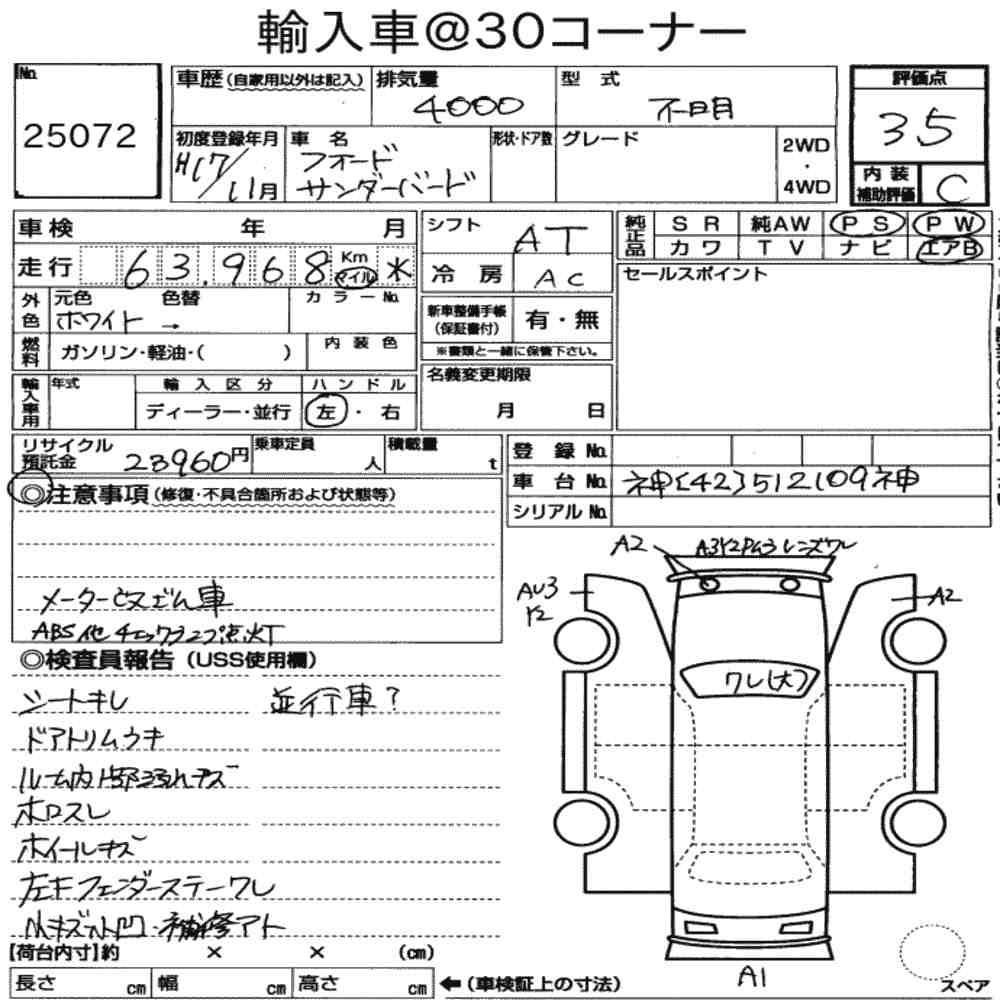 輸入車@30コーナー
No. 25072
車歴(自家用以外は記入)
排気量 4000
型式 不明
評価点 35
初度登録年月 H17/11月
車名 フォード サンダーバード
形状・ドア数
グレード
2WD・4WD
内装補助評価 C
車検 年 月
シフト AT
純正品 SR 純AW PS PW
カワ TV ナビ エアB
走行 63,968 Km マイル
冷房 AC
セールスポイント
外色 元色 ホワイト→ 色替
カラーNo.
新車整備手帳(保証書付) 有・無
※書類と一緒に保管下さい。
燃料 ガソリン・軽油・( )
内装色
名義変更期限 月 日
輸入車用 年式
輸入区分 ディーラー・並行
ハンドル 左・右
リサイクル預託金 23960円
乗車定員 人
積載量 t
登録No.
車台No. 神[42]512109神
シリアルNo.
◎注意事項(修復・不具合箇所および状態等)
ABS他チェックランプ点灯
◎検査員報告(USS使用欄)
シートキレ 並行車?
ドアトリムウキ
ホロスレ
ホイールキズ
左Fフェンダーステーワレ
小キズ小凹・補修アト
A2
レンズワレ
AU3
Y2
A2
ワレ(大)
A1
【荷台内寸】約 × × (cm)
長さ cm 幅 cm 高さ cm ←(車検証上の寸法)
スペア